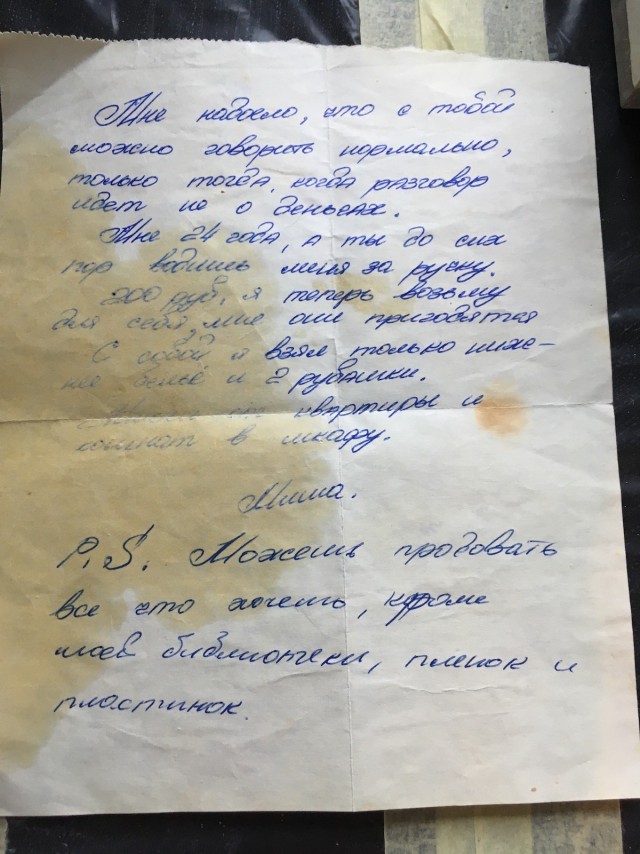 Мне надоело, что с тобой
можно говорить нормально,
только тогда, когда разговор
идет не о деньгах.
Мне 24 года, а ты до сих
пор водишь меня за ручку.
200 руб, я теперь возьму
для себя, мне они пригодятся
С собой я взял только ниж-
нее бельё и 2 рубашки.
Ключи от квартиры и
комнат в шкафу.
Миша.
P.S. Можешь продовать
все что хочешь, кроме
моей библиотеки, пленок и
пластинок.